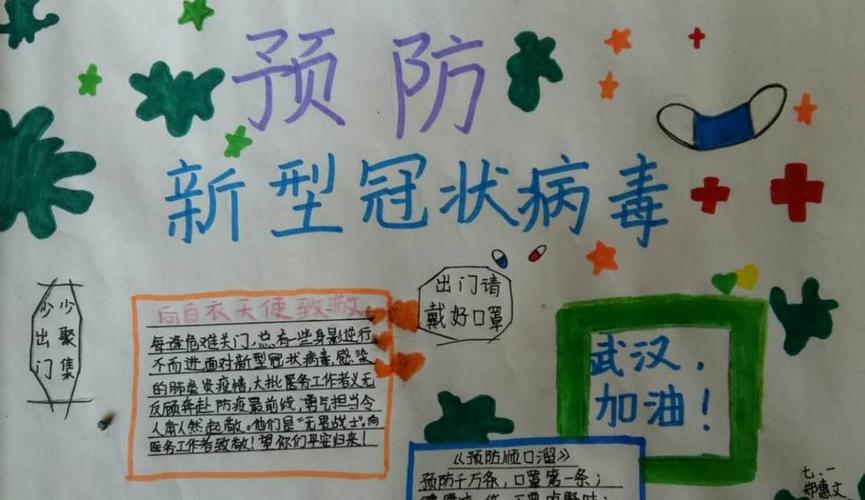 预防
新型冠状病毒
少出门
少聚集
出门请
戴好口罩
向白衣天使致敬
每逢危难关门,总有一些身影逆行
不而进,面对新型冠状病毒感染
的肺炎疫情,大批医务工作者义无
反顾奔赴防疫最前线,勇气担当令
人肃然起敬。他们是“无畏战士”,向
医务工作者致敬!望你们平安归来!
武汉,
加油!
《预防顺口溜》
预防千万条,口罩第一条;
七、一
郑惠文